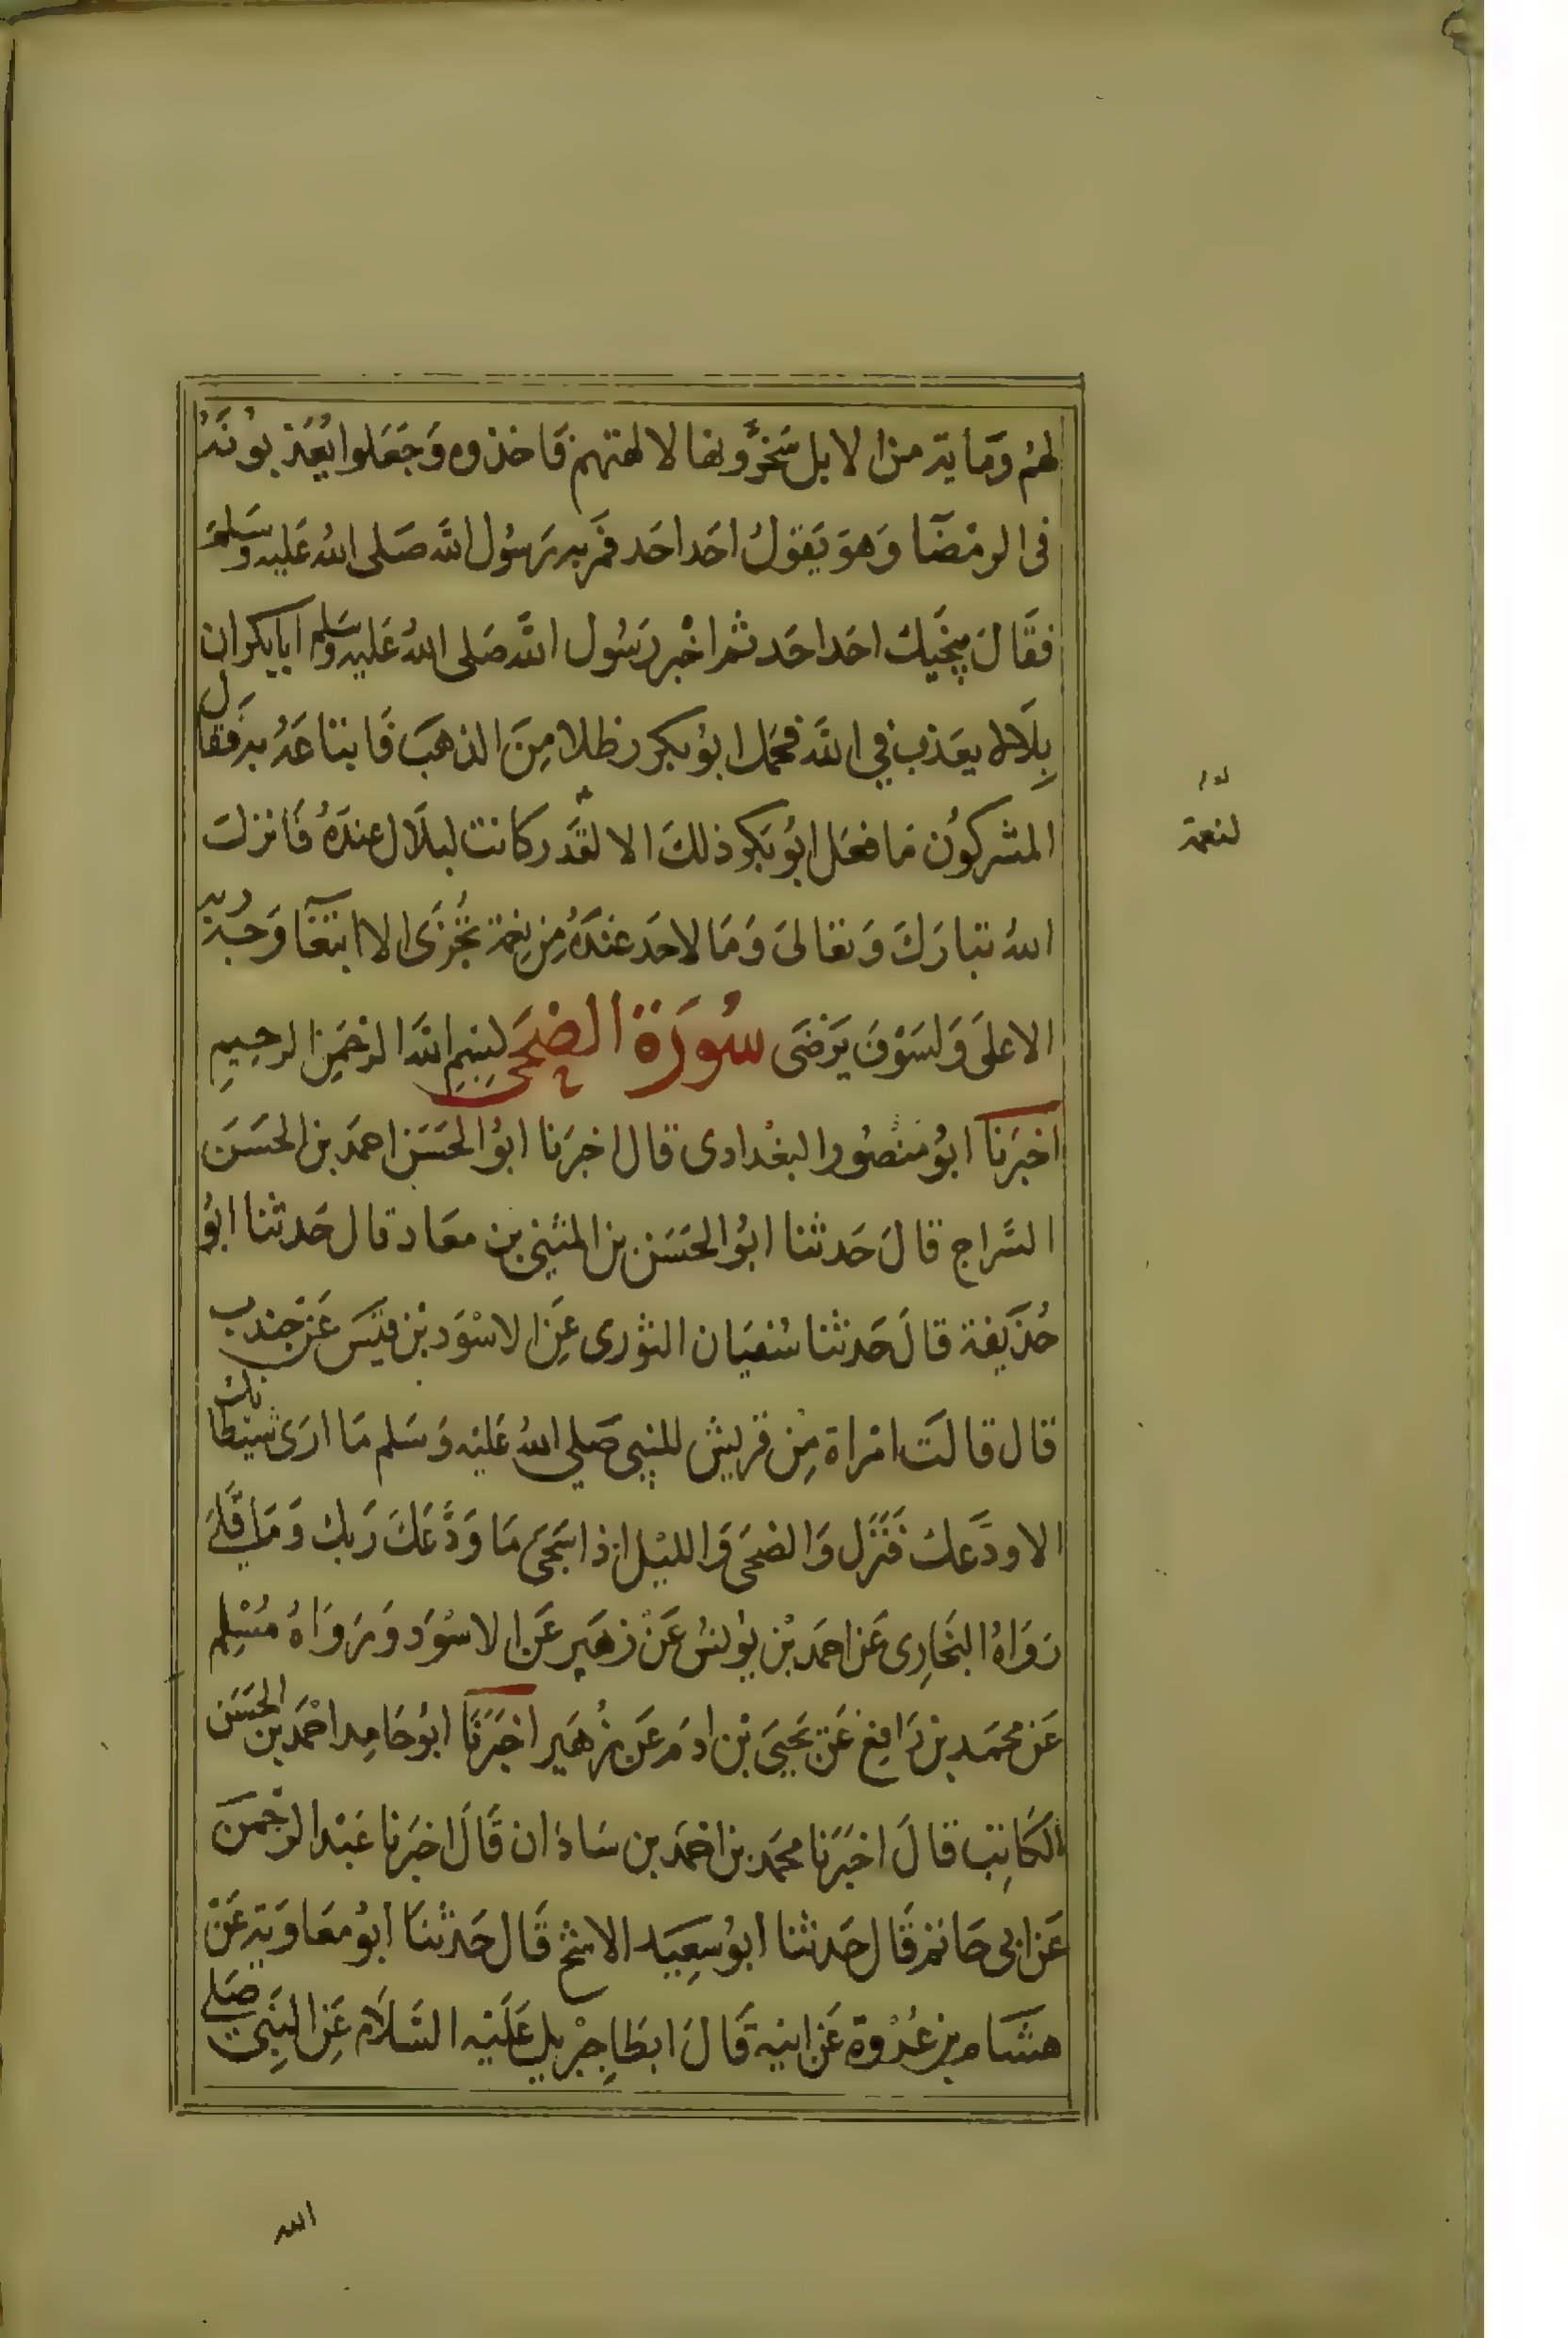 لهم وماية من الابل سخرونها لالهتهم فاخذوه وجعلوا يعذبونه
فى الرمضا وهو يقول احد احد فمر به رسول الله صلى الله عليه وسلم
فقال ينجيك احد احد ثم اخبر رسول الله صلى الله عليه وسلم ابابكر ان
بلالا يعذب في الله فحمل ابو بكر رطلا من الذهب فابتاعه به فقال
المشركون ما فعل ابو بكر ذلك الا لقدر كانت لبلال عنده فانزلت
لنعمة
الله تبارك وتعالى وما لاحد عنده من نعمة تجزى الا ابتغا وجه ربه
الاعلى ولسوف يرضى سورة الضحى بسم الله الرحمن الرحيم
اخبرنا ابو منصور البغدادى قال اخبرنا ابو الحسن احمد بن الحسن
السراج قال حدثنا ابو الحسن بن المثنى بن معاد قال حدثنا ابو
حذيفة قال حدثنا سفيان الثورى عن الاسود بن قيس عن جندب
قال قالت امراة من قريش للنبي صلى الله عليه وسلم ما ارى شيطانك
الا ودعك فنزل والضحى والليل اذا سجى ما ودعك ربك وما قلى
رواه البخارى عن احمد بن يونس عن زهير عن الاسود ورواه مسلم
عن محمد بن رافع عن يحيى بن ادم عن زهير اخبرنا ابو حامد احمد بن الحسن
الكاتب قال اخبرنا محمد بن احمد بن سادان قال اخبرنا عبد الرحمن
عن ابى حاتم قال حدثنا ابو سعيد الاشج قال حدثنا ابو معاوية عن
هشام بن عروة عن ابيه قال ابطا جبريل عليه السلام عن النبي صلى
الله